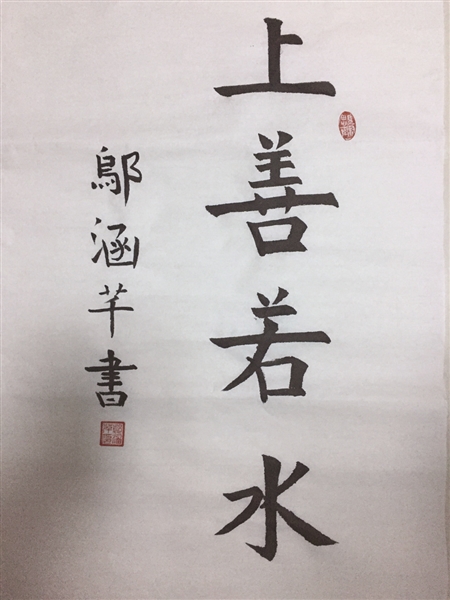 上善若水
鄔涵芊書